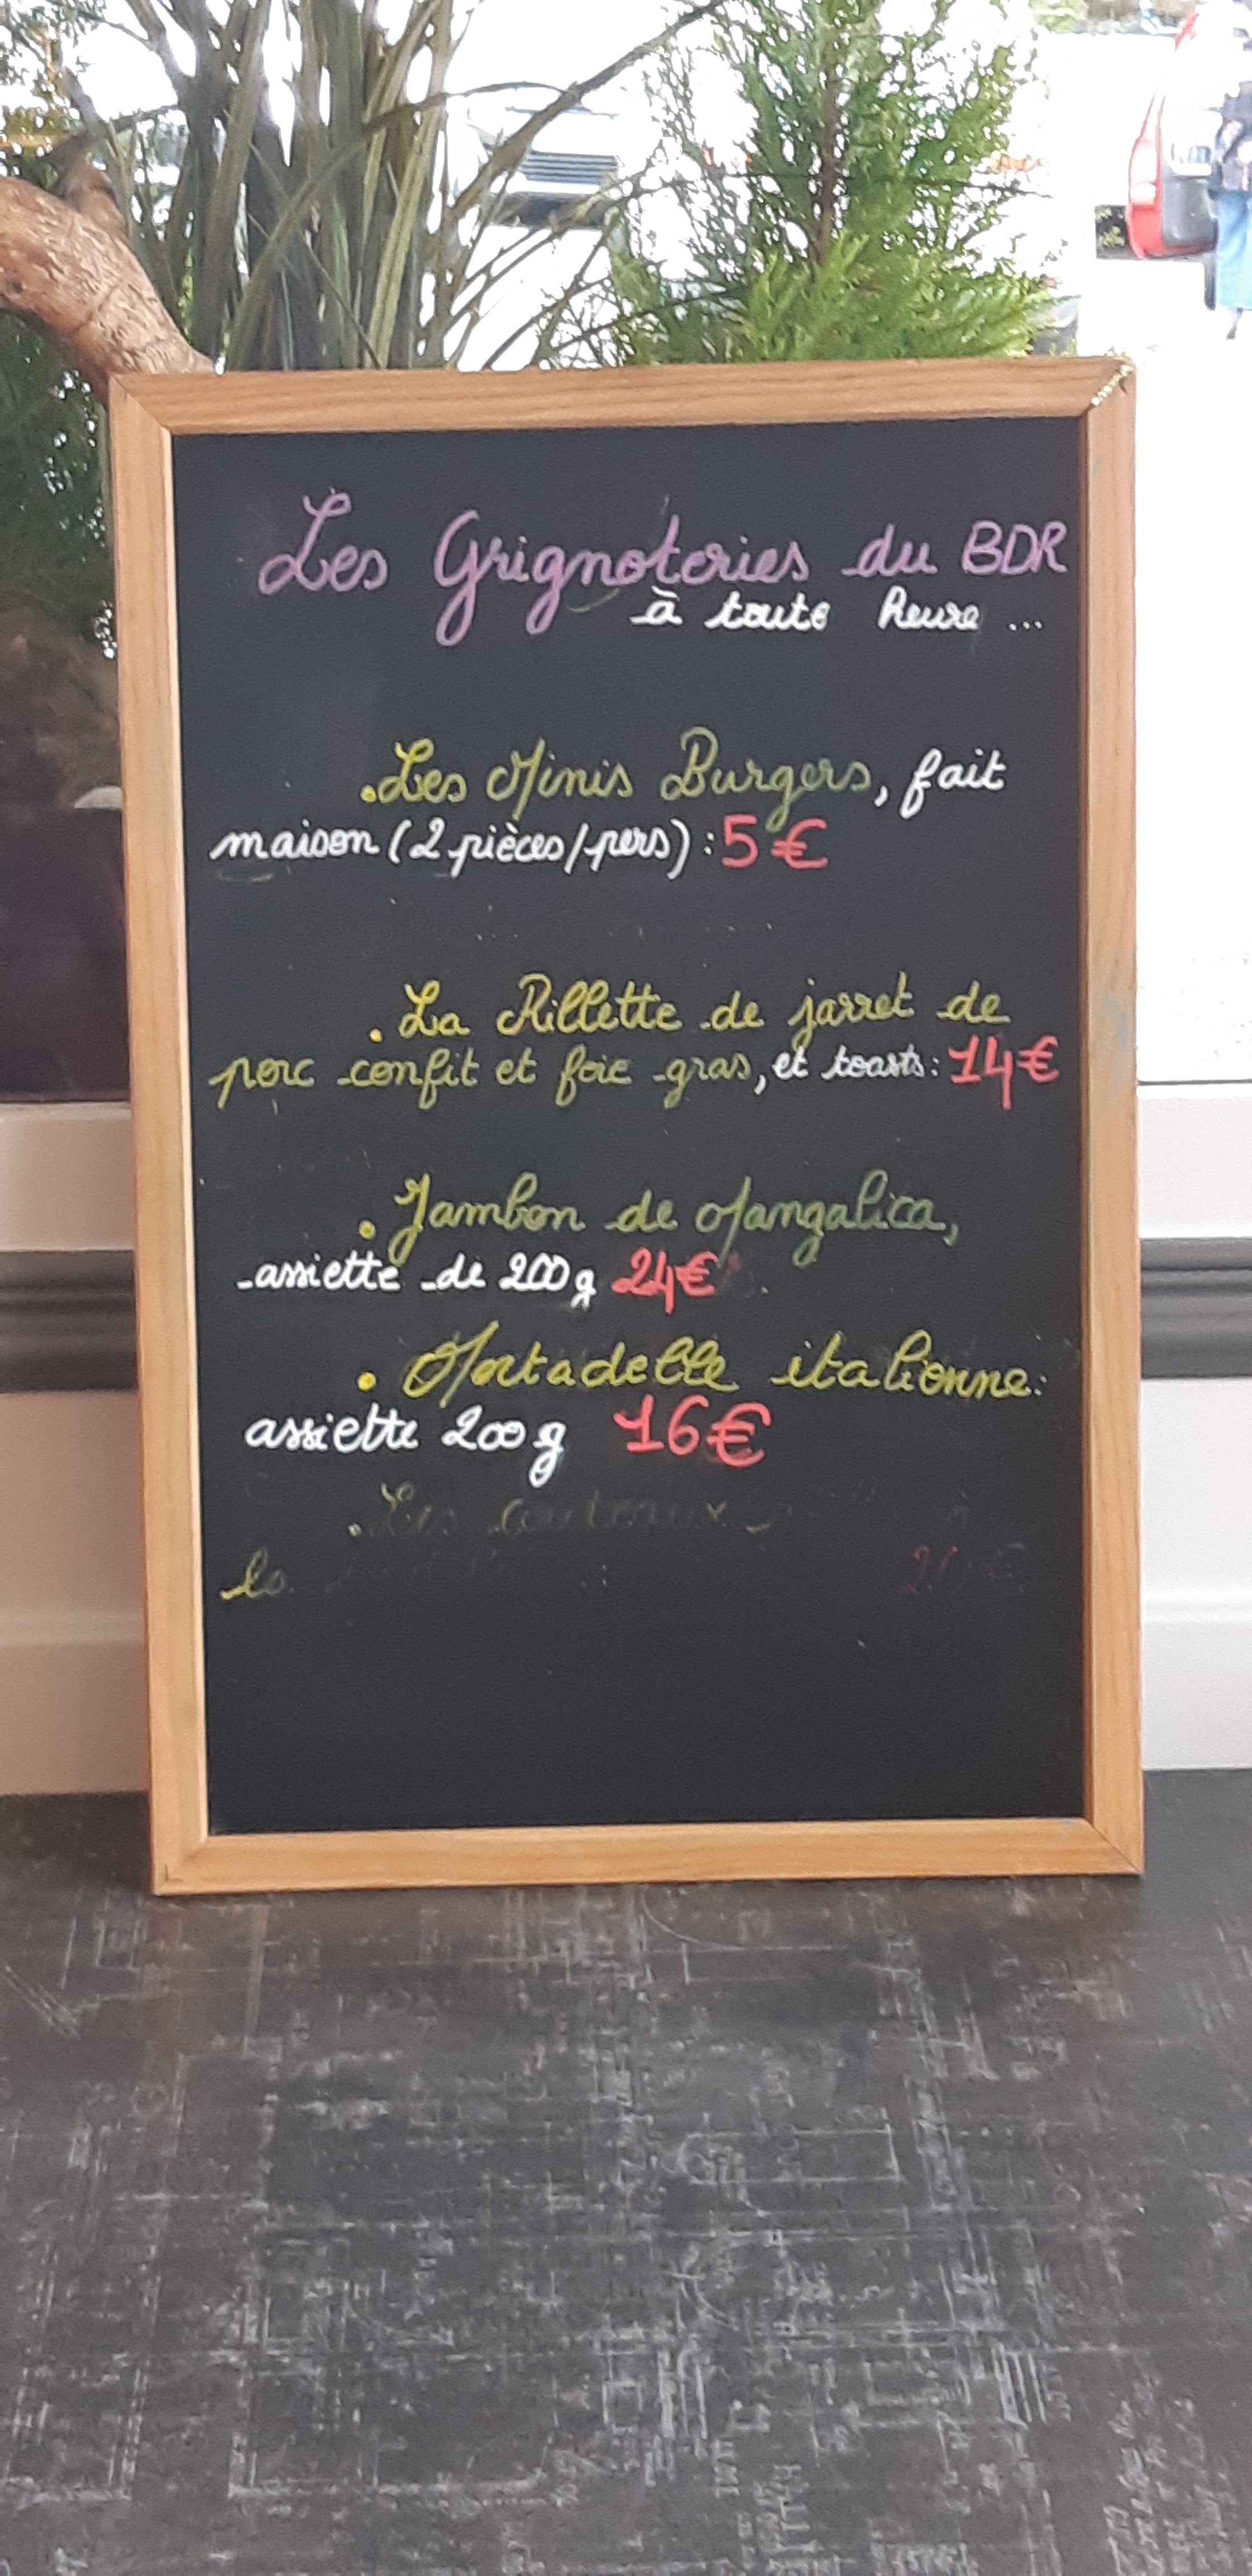 Les Grignoteries du BDR
à toute heure ...
. Les Minis Burgers, fait
maison (2 pièces/pers) : 5 €
. La Rillette de jarret de
porc confit et foie gras, et toasts : 14 €
. Jambon de Mangalica,
assiette de 200 g 24 €
. Mortadelle italienne :
assiette 200 g 16 €
. Les couteaux